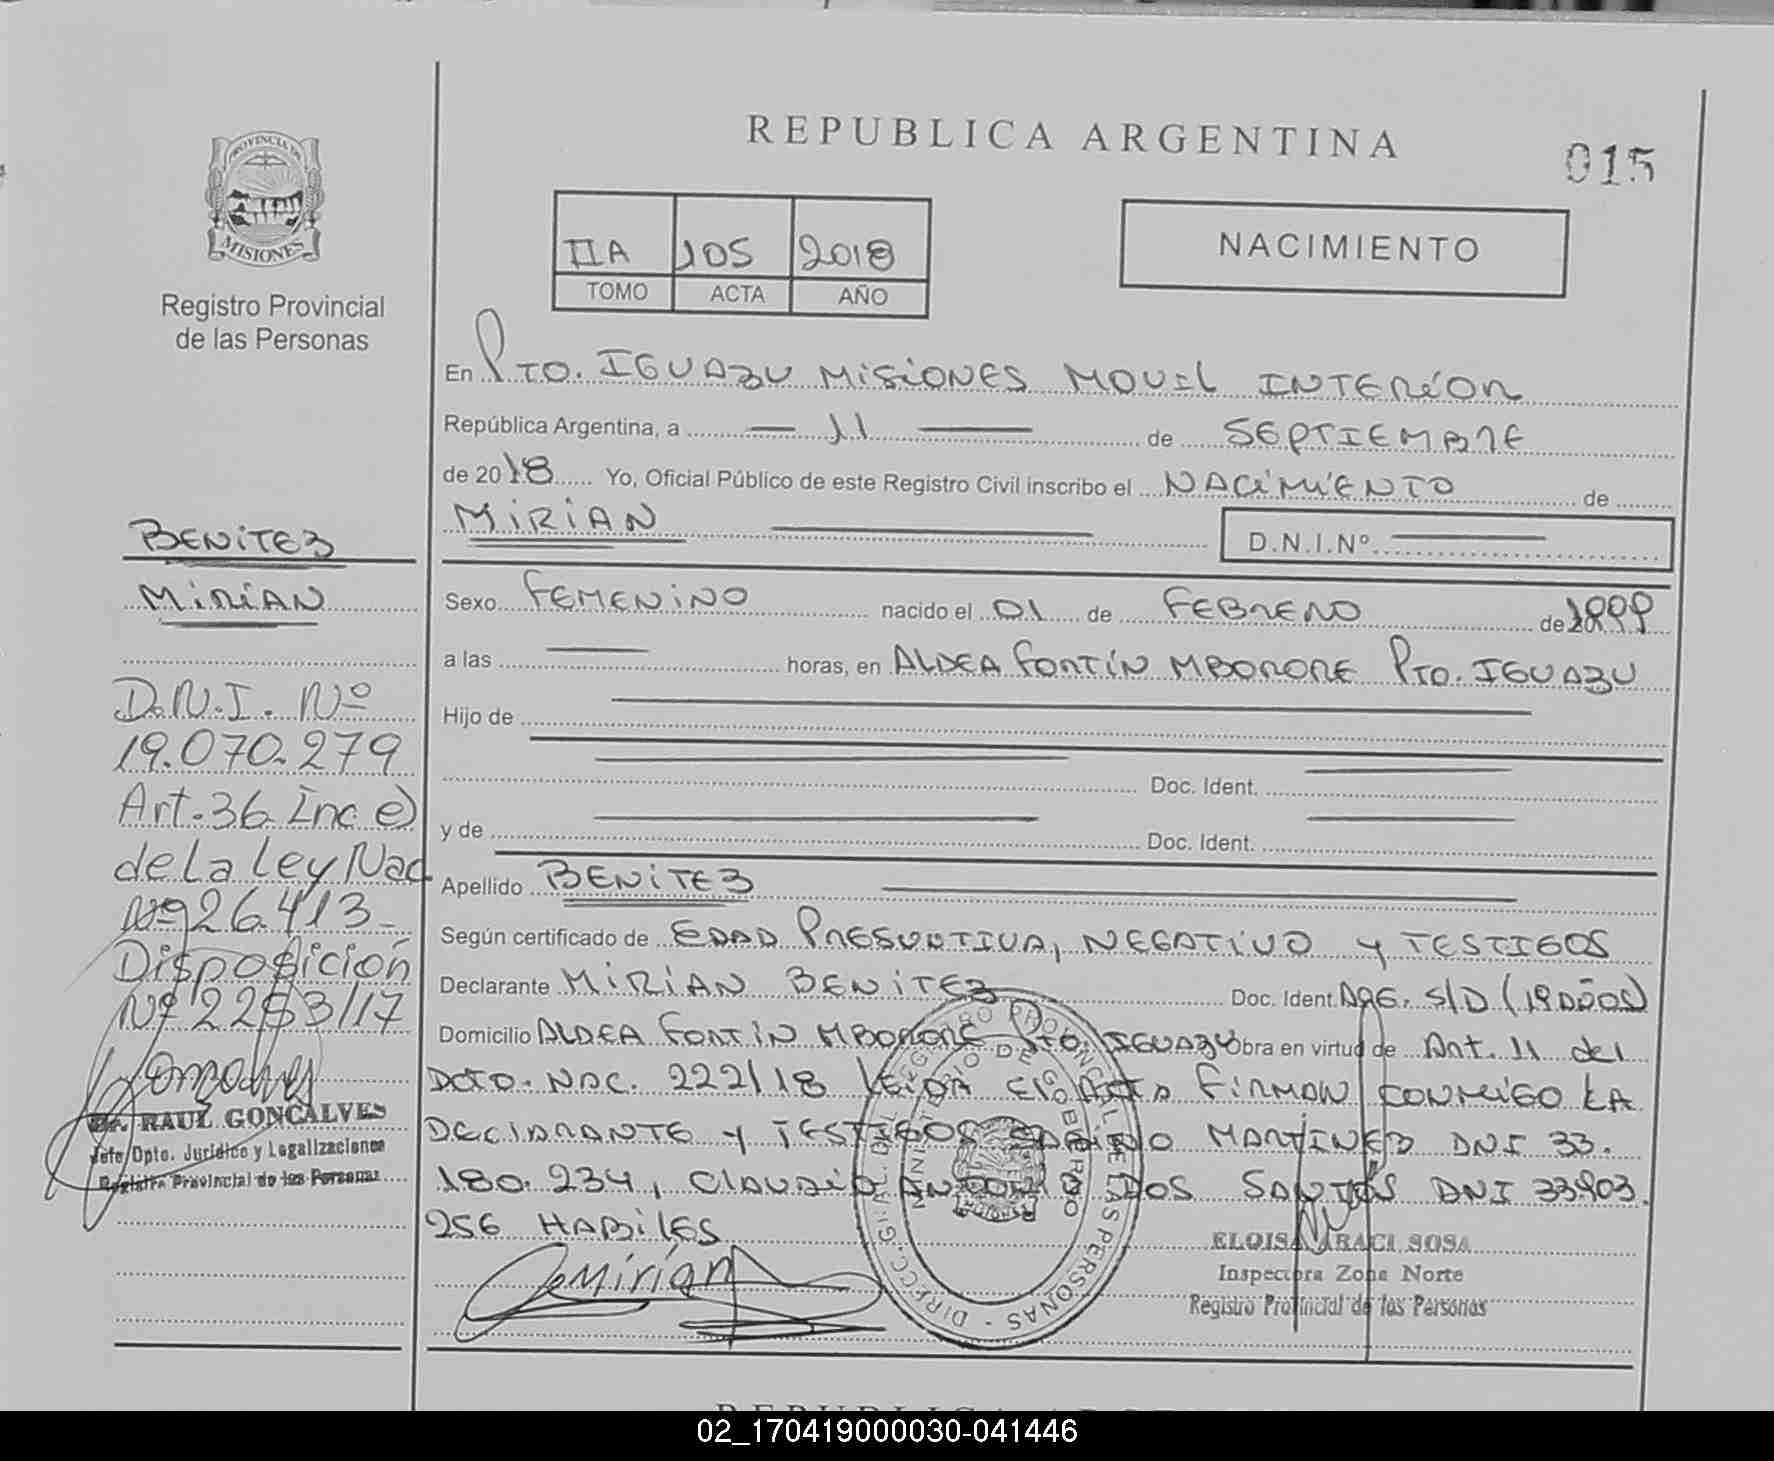 REPUBLICA ARGENTINA
015
PROVINCIA DE
MISIONES
Registro Provincial
de las Personas
IIA 105 2018
TOMO ACTA AÑO
NACIMIENTO
En Pto. IGUAZU MISIONES MOVIL INTERIOR
República Argentina, a — 11 — de SEPTIEMBRE
de 2018 Yo, Oficial Público de este Registro Civil inscribo el NACIMIENTO de
MIRIAN — D.N.I.Nº —
Sexo FEMENINO nacido el 01 de FEBRERO de 1999
a las — horas, en ALDEA FORTÍN MBORORE Pto. IGUAZU
Hijo de —
— Doc. Ident. —
y de — Doc. Ident. —
Apellido BENITEZ —
Según certificado de EDAD PRESUNTIVA, NEGATIVO y TESTIGOS
Declarante MIRIAN BENITEZ Doc. Ident. ARG. S/D (19 AÑOS)
Domicilio ALDEA FORTÍN MBORORE Pto. IGUAZU Obra en virtud de Art. 11 del
DCTO. NAC. 222/18 LEIDA EL ACTA FIRMAN CONMIGO LA
DECLARANTE y TESTIGOS MARTINEZ DNI 33.
180.234, CLAUDIO ANTONIO DOS SANTOS DNI 33.903.
256 HABILES
Mirian
ELOISA ARACI SOSA
Inspectora Zona Norte
Registro Provincial de las Personas
DIRECC. GRAL. DEL REGISTRO PROVINCIAL DE LAS PERSONAS -
MINISTERIO DE GOBIERNO
BENITEZ
MIRIAN
D.N.I. Nº
19.070.279
Art. 36 Inc e)
de La Ley Nac
Nº 26.413-
Disposición
Nº 2253/17
Dr. RAUL GONCALVES
Jefe Dpto. Jurídico y Legalizaciones
Registro Provincial de las Personas
02_170419000030-041446